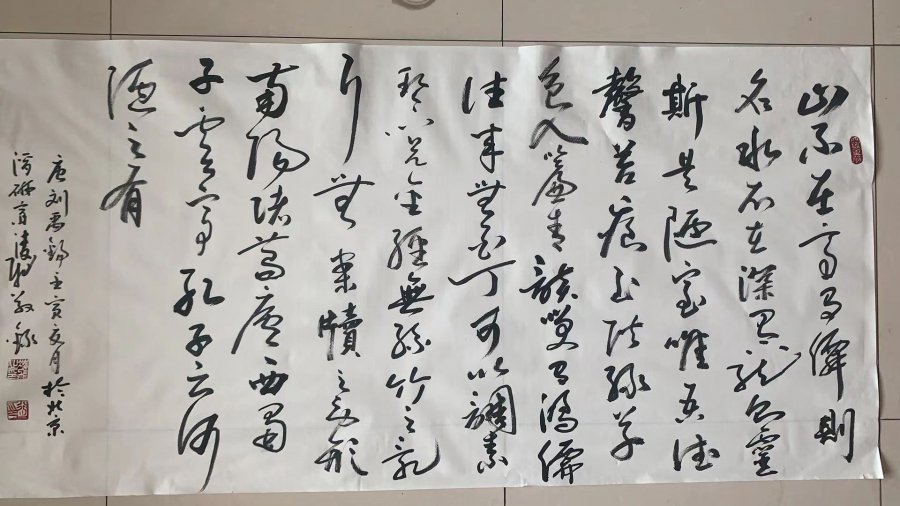 山不在高有僊則
名水不在深有龍則靈
斯是陋室唯吾德
馨苔痕上階綠草
色入簾青談笑有鴻儒
往來無白丁可以調素
琴閱金經無絲竹之亂
耳無案牘之勞形
南陽諸葛廬西蜀
子雲亭孔子云何
陋之有
唐刘禹錫壬寅夏月於北京
研齋敬錄